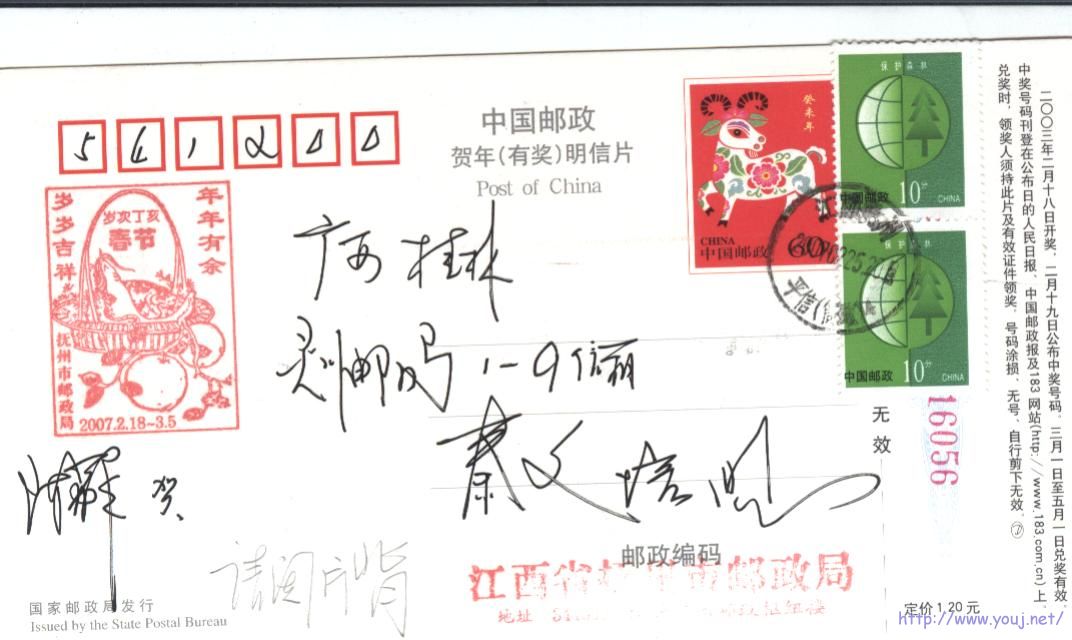 541200
中国邮政
贺年(有奖)明信片
Post of China
癸未年
CHINA
中国邮政
60分
保护森林
中国邮政
10分
CHINA
保护森林
中国邮政
10分
CHINA
年年有余
岁岁吉祥
岁次丁亥
春节
抚州市邮政局
2007.2.18~3.5
广西 桂林
1-9信箱
贺
请阅片背
无效
16056
邮政编码
江西省
邮政局
地址
国家邮政局发行
Issued by the State Postal Bureau
定价1.20元
二〇〇三年二月十八日开奖，二月十九日公布中奖号码。三月一日至五月一日兑奖有效。
中奖号码刊登在公布日的人民日报、中国邮政报及183网站(http://www.183.com.cn)上，
兑奖时，领奖人须持此片及有效证件领奖，号码涂损、无号、自行剪下无效。
http://www.youj.net/